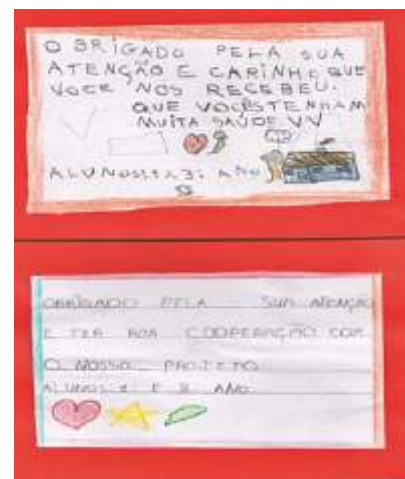 OBRIGADO PELA SUA
ATENÇÃO E CARINHO QUE
VOCE NOS RECEBEU.
QUE VOCÊS TENHAM
MUITA SAÚDE VV
ALUNOS: 1 2 3: ANO
OBRIGADO PELA SUA ATENÇÃO
E TER BOA COOPERAÇÃO COM
O NOSSO PROJETO
ALUNOS: 2 E 3 ANO